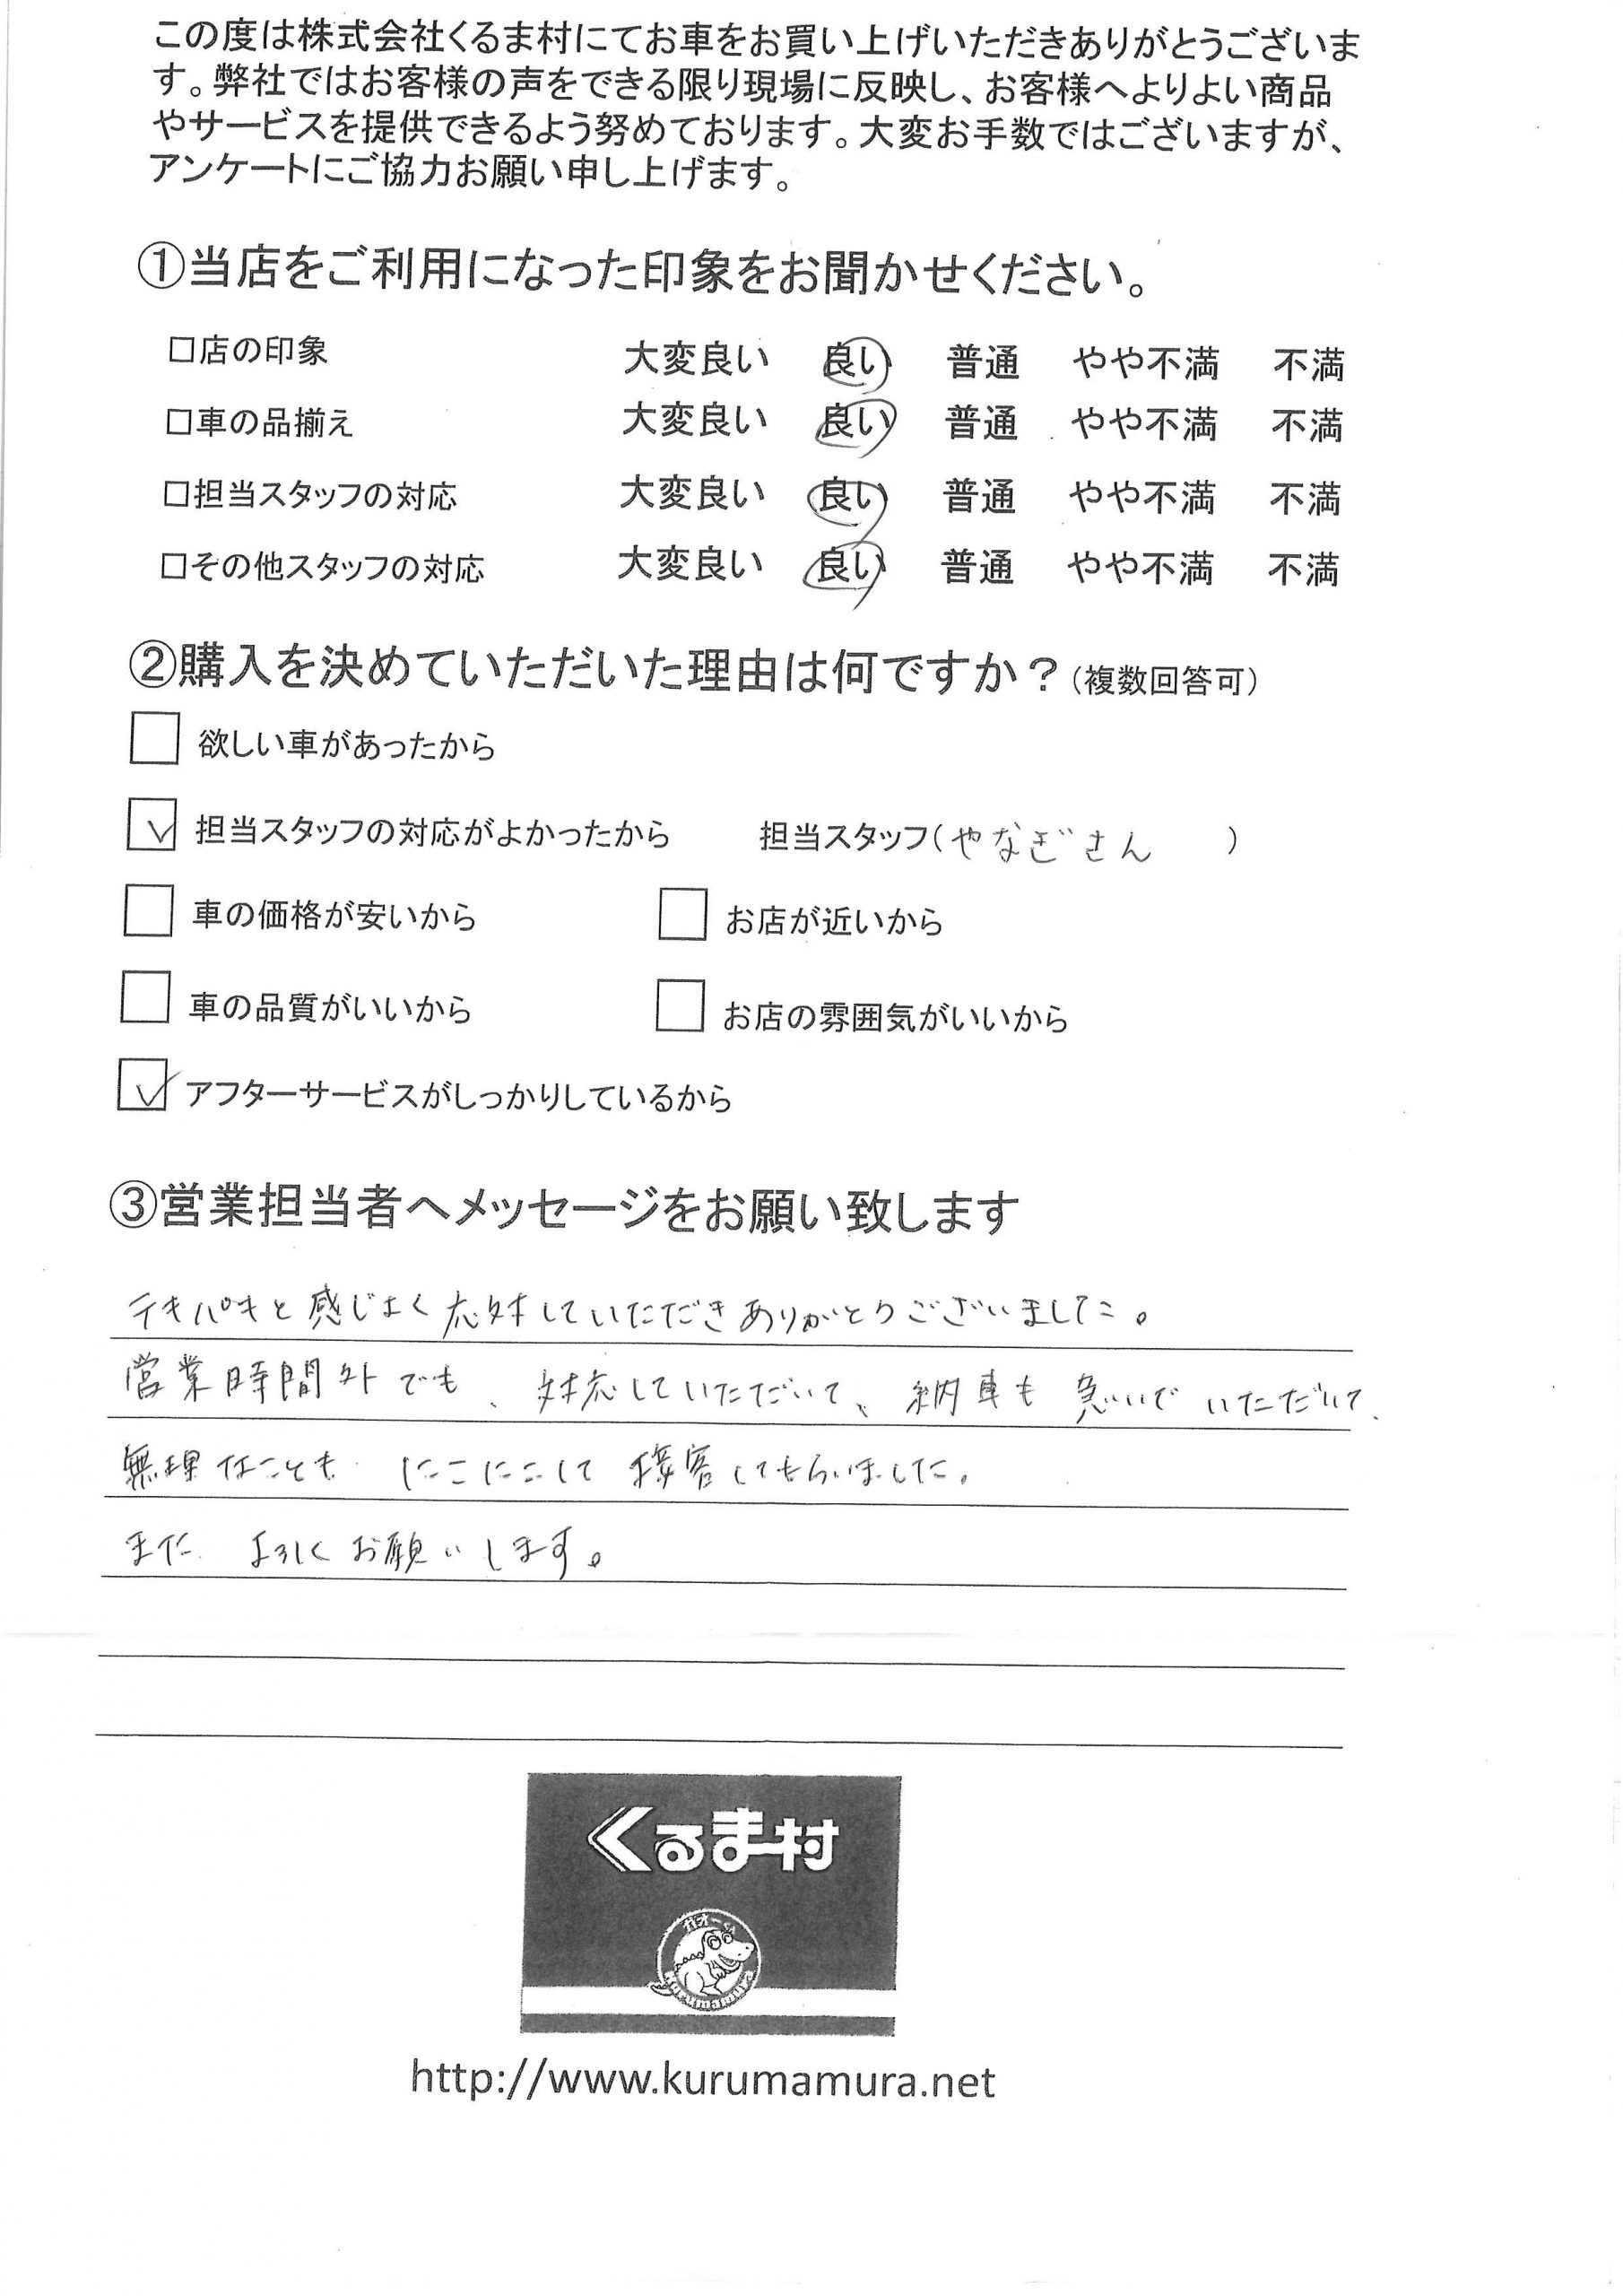 この度は株式会社くるま村にてお車をお買い上げいただきありがとうございま
す。弊社ではお客様の声をできる限り現場に反映し、お客様へよりよい商品
やサービスを提供できるよう努めております。大変お手数ではございますが、
アンケートにご協力お願い申し上げます。
①当店をご利用になった印象をお聞かせください。
□店の印象 大変良い 良い 普通 やや不満 不満
□車の品揃え 大変良い 良い 普通 やや不満 不満
□担当スタッフの対応 大変良い 良い 普通 やや不満 不満
□その他スタッフの対応 大変良い 良い 普通 やや不満 不満
②購入を決めていただいた理由は何ですか?(複数回答可)
欲しい車があったから
担当スタッフの対応がよかったから 担当スタッフ(やなぎさん )
車の価格が安いから お店が近いから
車の品質がいいから お店の雰囲気がいいから
アフターサービスがしっかりしているから
③営業担当者へメッセージをお願い致します
テキパキと感じよく応対していただきありがとうございました。
営業時間外でも、対応していただいて、納車も急いでいただいて、
無理なことも にこにこして接客してもらいました。
また よろしくお願いします。
くるま村
ガオーくん
Kurumamura
http://www.kurumamura.net